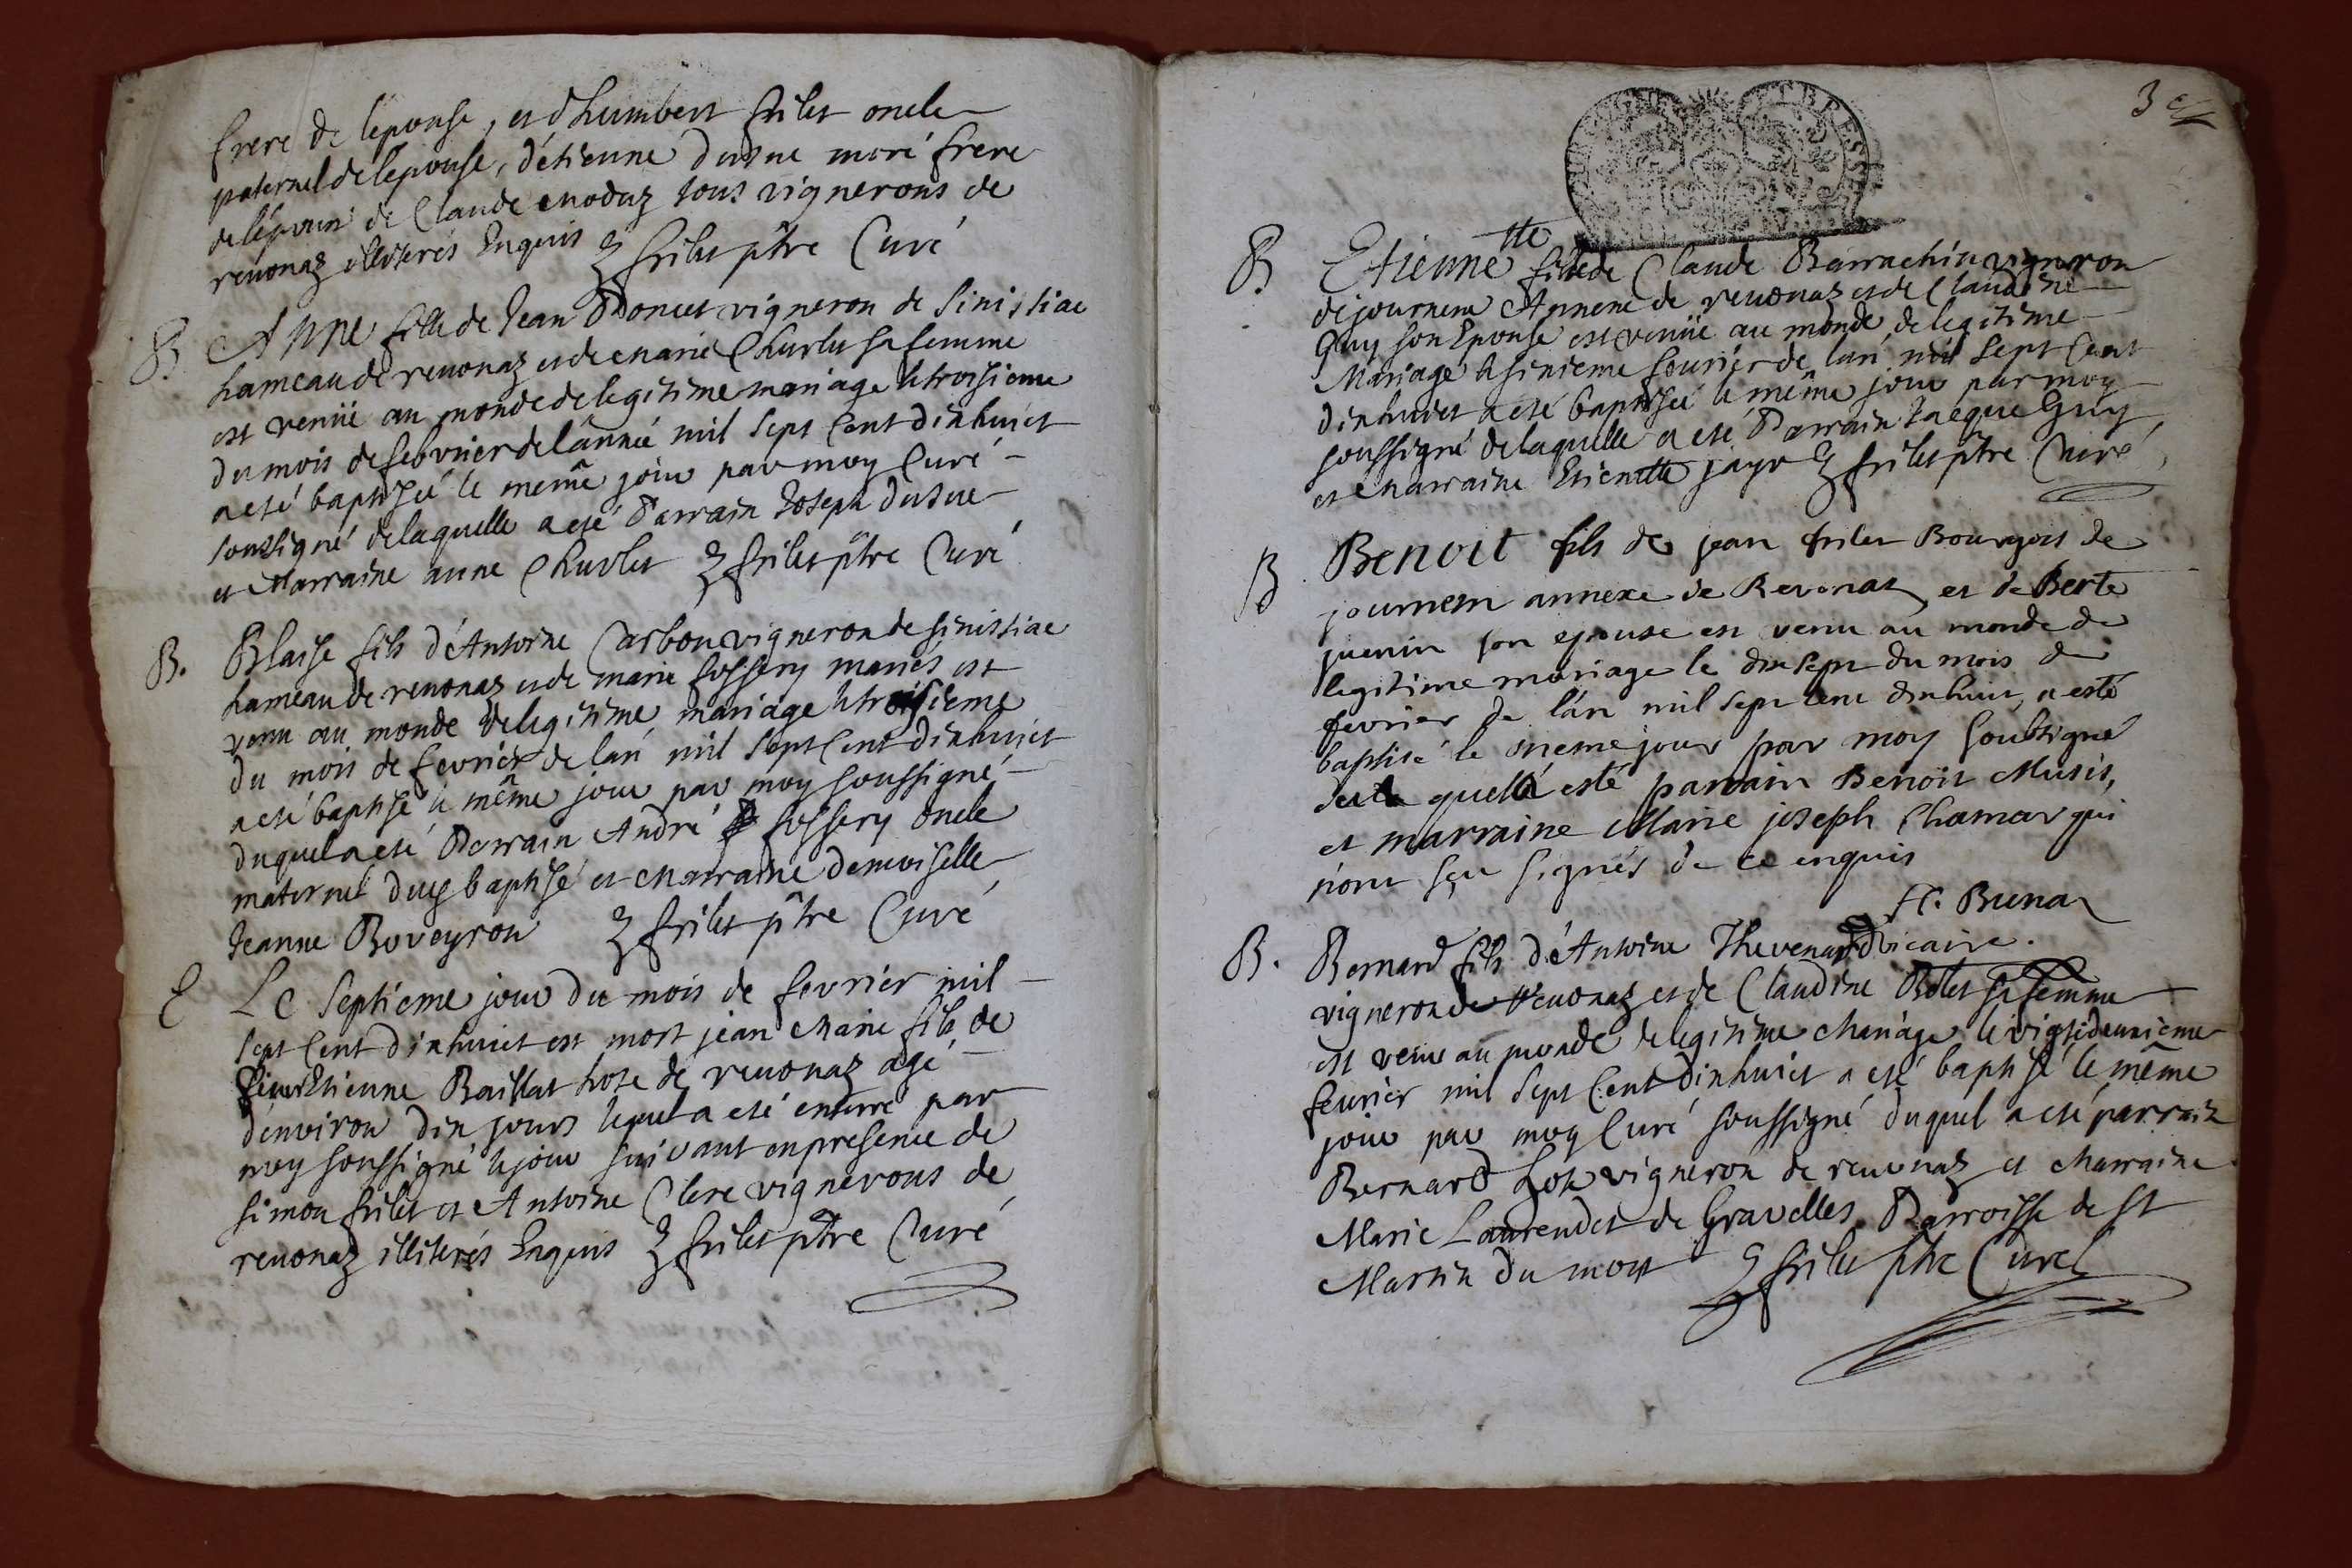 frere de lepouse, et d'humbert frilet oncle
paternel de lepouse, d'étienne dusue moré frere
de lépoux de Claude moduz tous vignerons de
reuonaz illiterés Enquis J frilet ptre Curé
B Anne fille de Jean Poncet vigneron de Sinissiac
hameau de reuonaz et de marie Churlet sa femme
est venüe au monde de legitime mariage le troisieme
du mois de febvrier de lannée mil Sept Cent dixhuict
a eté baptisée le même jour par moy Curé
soussigné de laquelle a eté Parrain Joseph dusue
et Marraine anne Churlet J frilet ptre Curé
B. Blaise fils d'Antoine Carbon vigneron de sinissiac
hameau de reuonaz et de marie fossery mariés est
venu au monde de legitime mariage le troisieme
du mois de fevrier de lan mil Sept Cent dixhuict
a eté baptisé le même jour par moy soussigné
duquel a eté Parrain André fossery oncle
maternel du baptisé et Marraine demoiselle
Jeanne Boveyron J frilet ptre Curé
E Le Septieme jour du mois de fevrier mil
Sept Cent dixhuict est mort jean Marie fils de
Etienne Baillat hote de reuonaz agé
d'environ dix jours lequel a eté enterré par
moy soussigné le jour suivant en presence de
simon frilet et Antoine Clere vignerons de
reuonaz illiterés Enquis J frilet ptre Curé
3e
B Etiennette fille de Claude Barrachin vigneron
de journens Annexe de reuonaz et de Claudine
Guy son Epouse est venüe au monde de legitime
Mariage le sixieme feurier de lan mil Sept Cent
dixhuict a eté baptisée le même jour par moy
soussigné de laquelle a eté Parrain Jacque Guy
et Marraine Etienette jayr J frilet ptre Curé
B Benoit fils de jean frilet Bourgois de
journem annexe de Revonas et de Berte
juenin son epouse est venu au monde de
legitime mariage le dix sept du mois de
fevrier de lán mil sept cent dixhuit, a esté
baptisé le meme jour par moy soubsigné
esté parrain Benoit Musis,
et marraine Marie joseph Chamar qui
n'ont sçu signés de ce enquis
fr. Buna
vicaire.
B. Bernard fils d'Antoine Thevenard
vigneron de reuonaz et de Claudine Bolet sa femme
est venu au monde de legitime Mariage le vigtideuxieme
feurier mil Sept Cent dixhuict a eté baptisé le même
jour par moy Curé soussigné duquel a eté parrain
Bernard vigneron de reuonaz et Marraine
Marie Laurendet de Gravelles Parroisse de St
Martin du mont J frilet ptre Curé